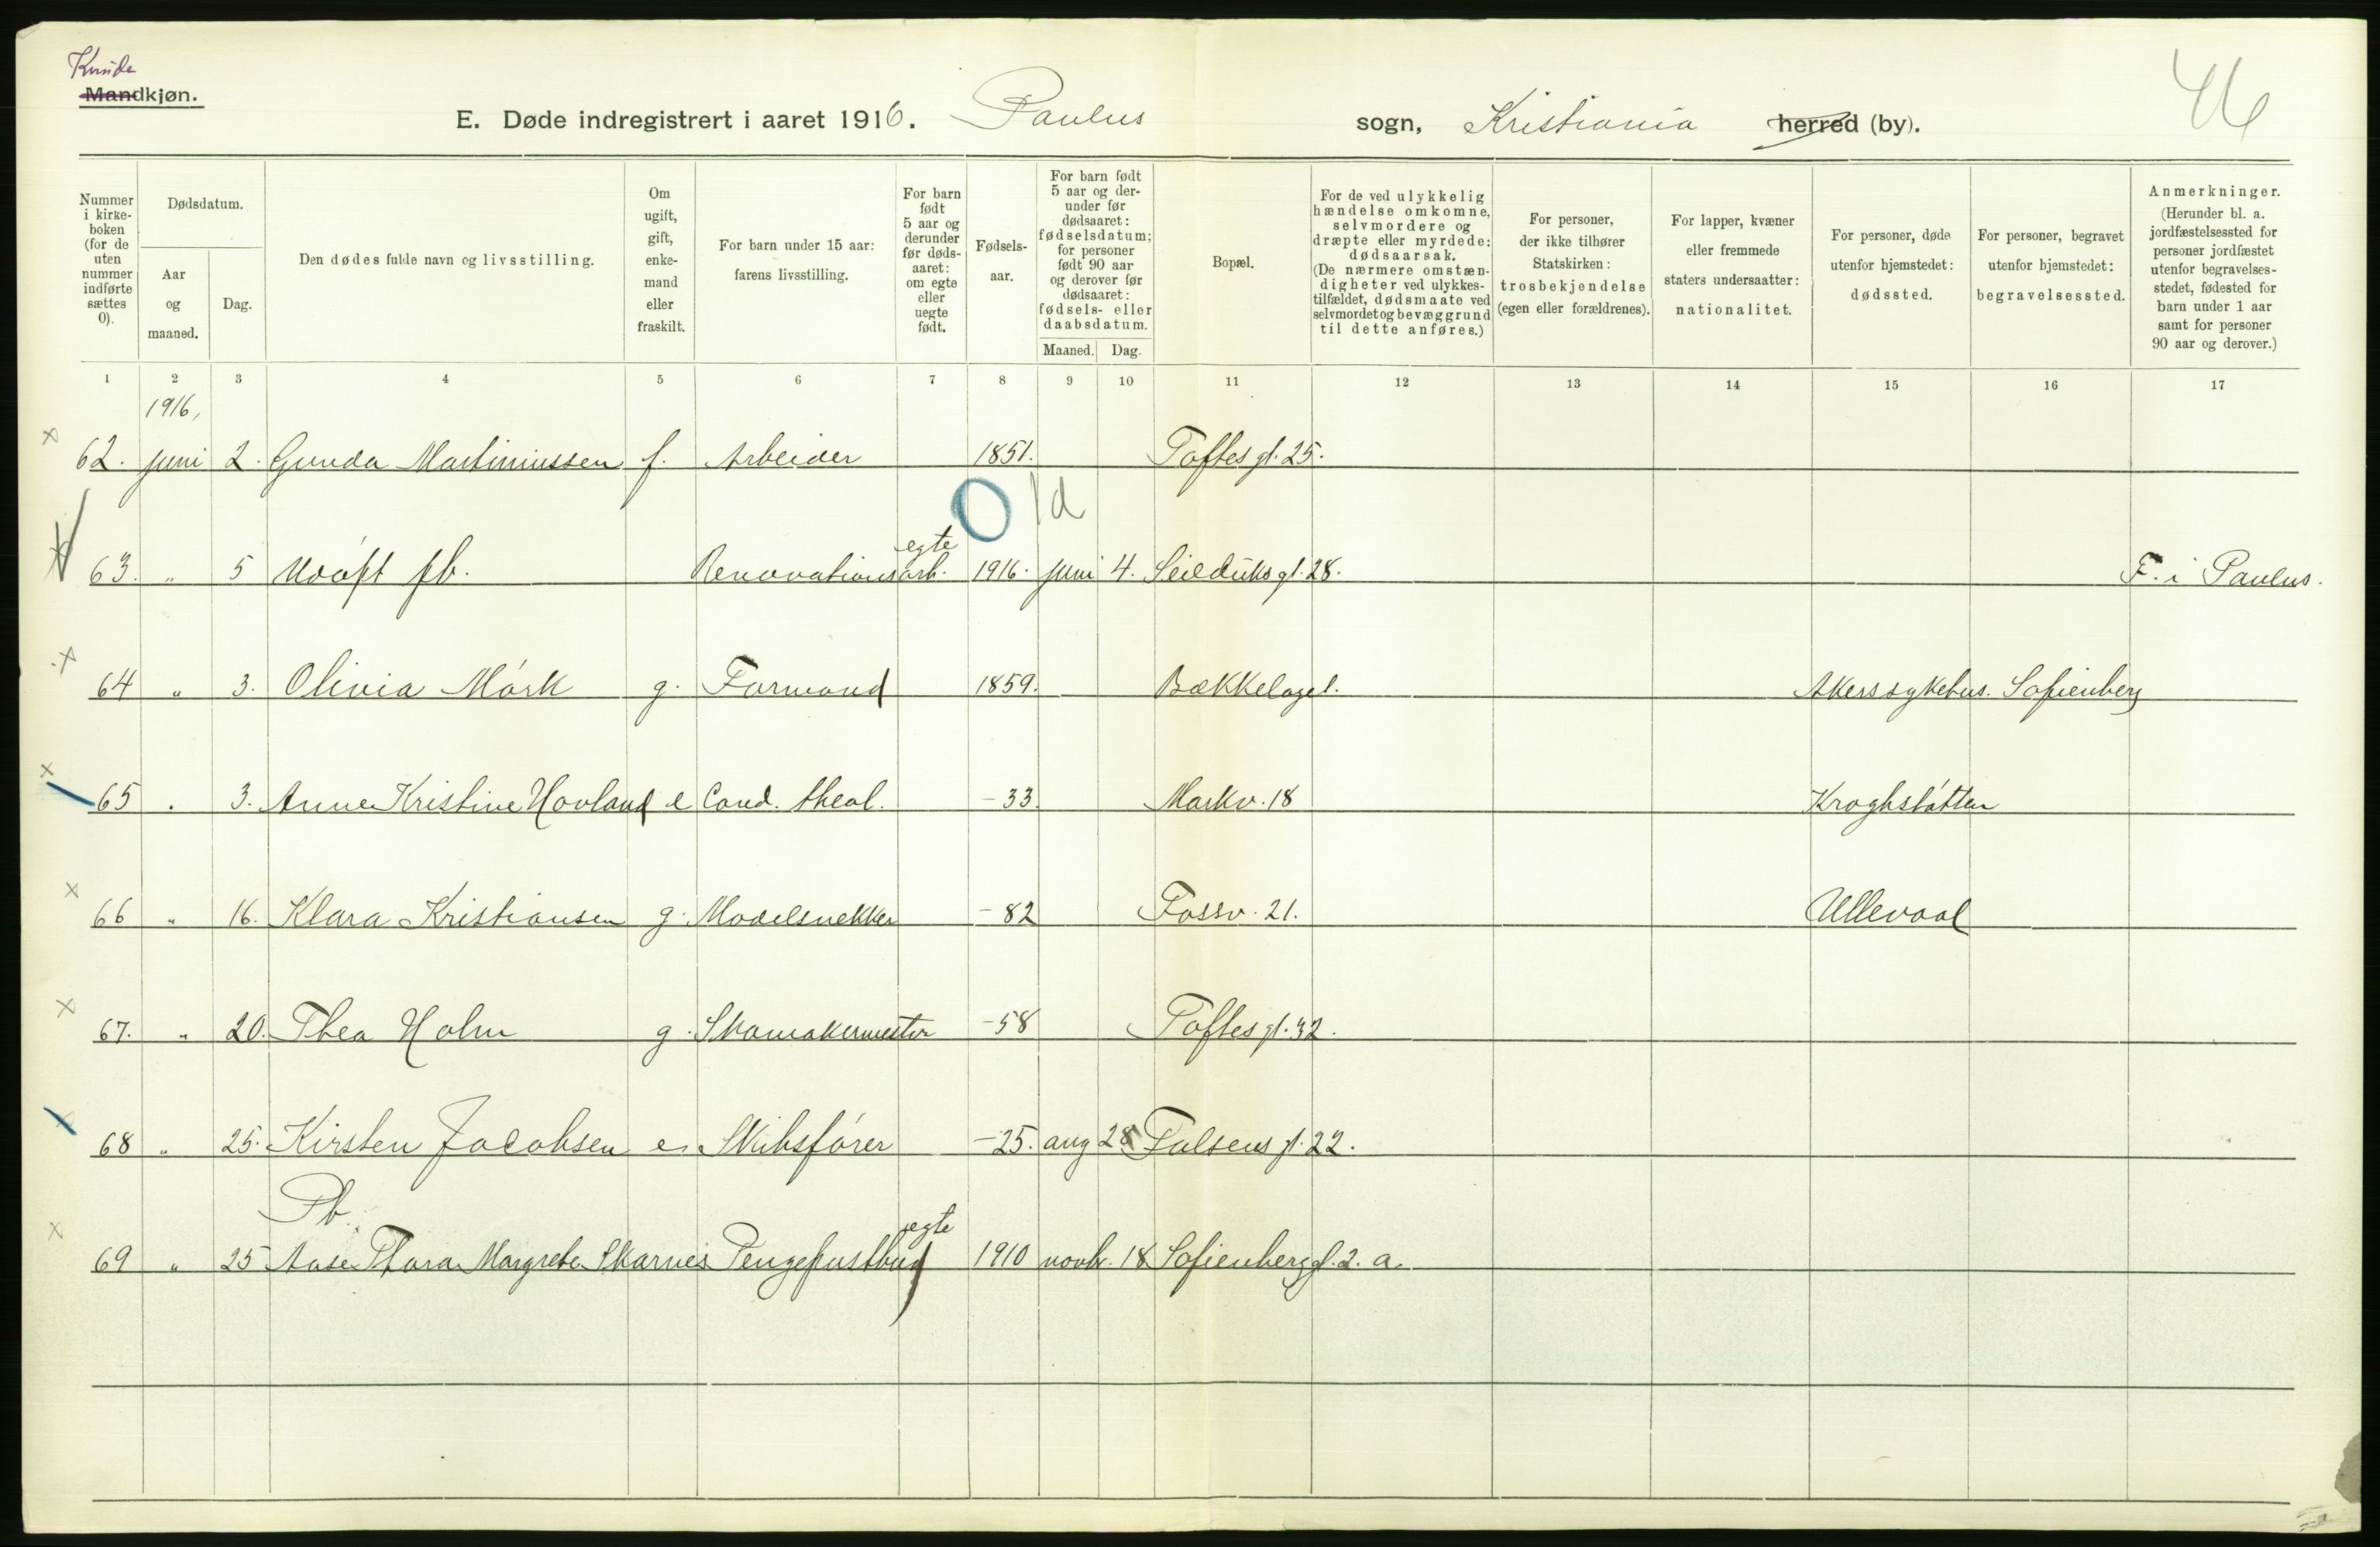 Kvinde
Mandkjøn.
E. Døde indregistrert i aaret 1916. Paulus sogn, Kristiania herred (by).
Nummer i kirkeboken (for de uten nummer indførte sættes 0).
Dødsdatum.
Aar og maaned.
Dag.
Den dødes fulde navn og livsstilling.
Om ugift, gift, enkemand eller fraskilt.
For barn under 15 aar: farens livsstilling.
For barn født 5 aar og derunder før dødsaaret: om egte eller uegte født.
Fødselsaar.
For barn født 5 aar og derunder før dødsaaret: fødselsdatum; for personer født 90 aar og derover før dødsaaret: fødsels- eller daabsdatum.
Maaned. Dag.
Bopæl.
For de ved ulykkelig hændelse omkomne, selvmordere og dræpte eller myrdede: dødsaarsak. (De nærmere omstændigheter ved ulykkestilfældet, dødsmaate ved selvmordet og bevæggrund til dette anføres.)
For personer, der ikke tilhører Statskirken: trosbekjendelse (egen eller forældrenes).
For lapper, kvæner eller fremmede staters undersaatter: nationalitet.
For personer, døde utenfor hjemstedet: dødssted.
For personer, begravet utenfor hjemstedet: begravelsessted.
Anmerkninger. (Herunder bl. a. jordfæstelsessted for personer jordfæstet utenfor begravelsesstedet, fødested for barn under 1 aar samt for personer 90 aar og derover.)
1 2 3 4 5 6 7 8 9 10 11 12 13 14 15 16 17
1916,
62. juni 2. Gunda Martiniussen f. Arbeider 1851. Toftes gt. 25.
0 1 d
63. " 5 Udøpt pb. Renovationsarb. egte 1916. juni 4. Seilduks gt. 28. F. i Paulus.
64 " 3. Olivia Mørk g. Formand 1859. Bækkelaget. Akers sykehus. Sofienberg
65 " 3. Anne Kristine Hovland e Cand. theol. -33. Markv. 18 Kroghstøtten
66 " 16. Klara Kristiansen g. Modelsnekker -82 Fossv. 21. Ullevaal
67. " 20. Thea Holm g. Skomakermester -58 Toftes gt. 32.
68 " 25. Kirsten Jacobsen e. Skibsfører -25. aug 28 Falsens gt. 22.
Pb.
69 " 25 Aase Thora Margrete Skarnes Pengepostbud egte 1910 novbr. 18 Sofienberg gt. 2. a.